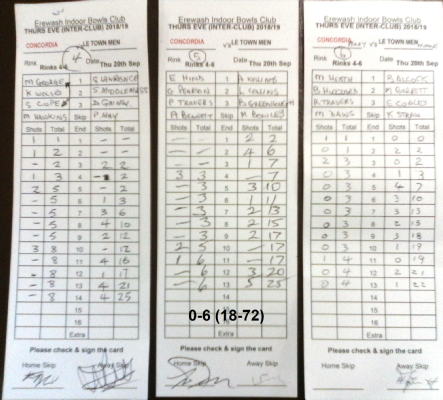 Erewash Indoor Bowls Club
THURS EVE (INTER-CLUB) 2018/19
CONCORDIA LE TOWN MEN
Rink 4 Date Thu 20th Sep
Rinks 4-6
M GEORGE 1 S LAWRENCE
2
S COPE 3
M HAWKINS Skip P MAY
Shots Total End Shots Total
1 1 1 - -
- 1 2 - -
- 2 3 2 2
1 3 4 - 2
2 5 5 - 2
- 5 6 1 3
- 5 7 3 6
- 5 8 4 10
- 5 9 2 12
3 8 10 - 12
- 8 11 4 16
- 8 12 1 17
- 8 13 4 21
- 8 14 4 25
15
16
Extra
Please check & sign the card
Home Skip Away Skip
Erewash Indoor Bowls Club
THURS EVE (INTER-CLUB) 2018/19
CONCORDIA VS LE TOWN MEN
Rink 5 Date Thu 20th Sep
Rinks 4-6
E HIND 1
G PEARSON 2 L COLLINS
P TRAVERS 3
A BENNETT Skip M BENTLEY
Shots Total End Shots Total
- - 1 2 2
- - 2 4 6
- - 3 1 7
3 3 4 - 7
- 3 5 3 10
- 3 6 1 11
- 3 7 2 13
- 3 8 2 15
- 3 9 2 17
2 5 10 - 17
1 6 11 - 17
- 6 12 3 20
- 6 13 5 25
14
0-6 (18-72)
15
16
Extra
Please check & sign the card
Home Skip Away Skip
Erewash Indoor Bowls Club
THURS EVE (INTER-CLUB) 2018/19
CONCORDIA VS LE TOWN MEN
Rink 6 Date Thu 20th Sep
Rinks 4-6
M HEATH 1 B ALCOCK
B HUDDARD 2 M GARRETT
R TRAVERS 3 E COOLEY
M DAWS Skip K STRAW
Shots Total End Shots Total
1 1 1 0 0
1 1 2 2 2
2 3 3 0 2
0 3 4 1 3
0 3 5 4 7
0 3 6 3 10
0 3 7 3 13
0 3 8 2 15
0 3 9 3 18
0 3 10 1 19
1 4 11 0 19
0 4 12 2 21
0 4 13 1 22
14
15
16
Extra
Please check & sign the card
Home Skip Away Skip